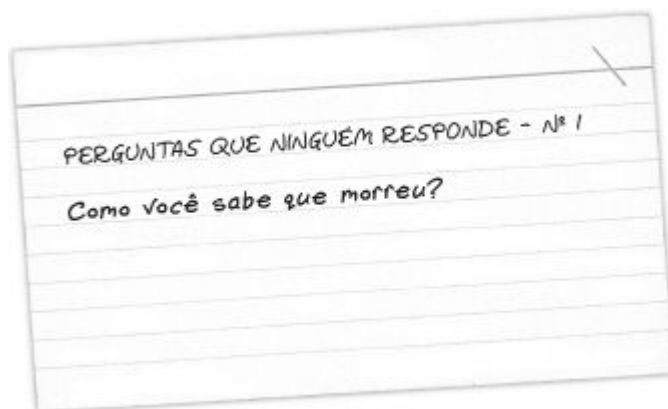 PERGUNTAS QUE NINGUÉM RESPONDE - Nº 1
Como você sabe que morreu?